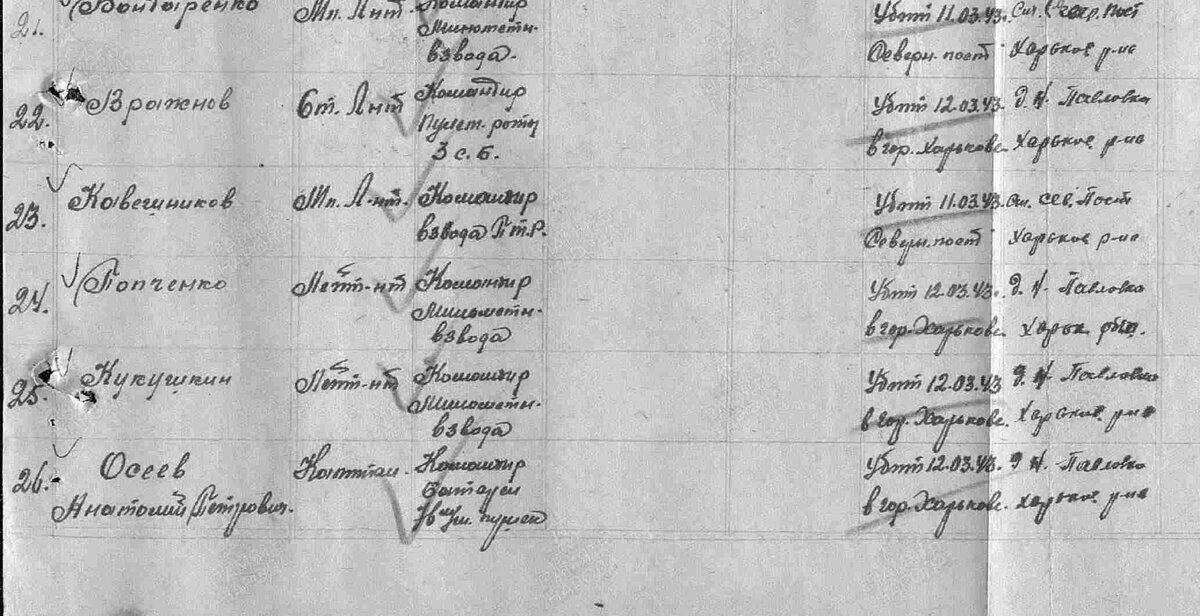 21. Бондаренко Мл. Л-нт Командир Убит 11.03.43. Ст. Север. Пост
Минометн. Северн. пост Харьков. р-на
взвода.
22. Вражнов Ст. Л-нт Командир Убит 12.03.43. Д. Н. Павловка
Пулет. роты в гор. Харькове. Харьков. р-на
3 с. б.
23. Кавешников Мл. Л-нт. Командир Убит 11.03.43. Ст. Сев. Пост
взвода П.т.Р. Северн. пост Харьков. р-на
24. Попченко Лейт-нт Командир Убит 12.03.43. д. Н. Павловка
Минометн. в гор. Харькове. Харьк.
взвода
25. Кукушкин Лейт-нт Командир Убит 12.03.43 д. Н. Павловка
Минометн. в гор. Харькове. Харьков. р-на
взвода
26. Осеев Капитан. Командир Убит 12.03.43. д Н. Павловка
Анатолий Петрович. батареи в гор. Харькове. Харьков. р-на